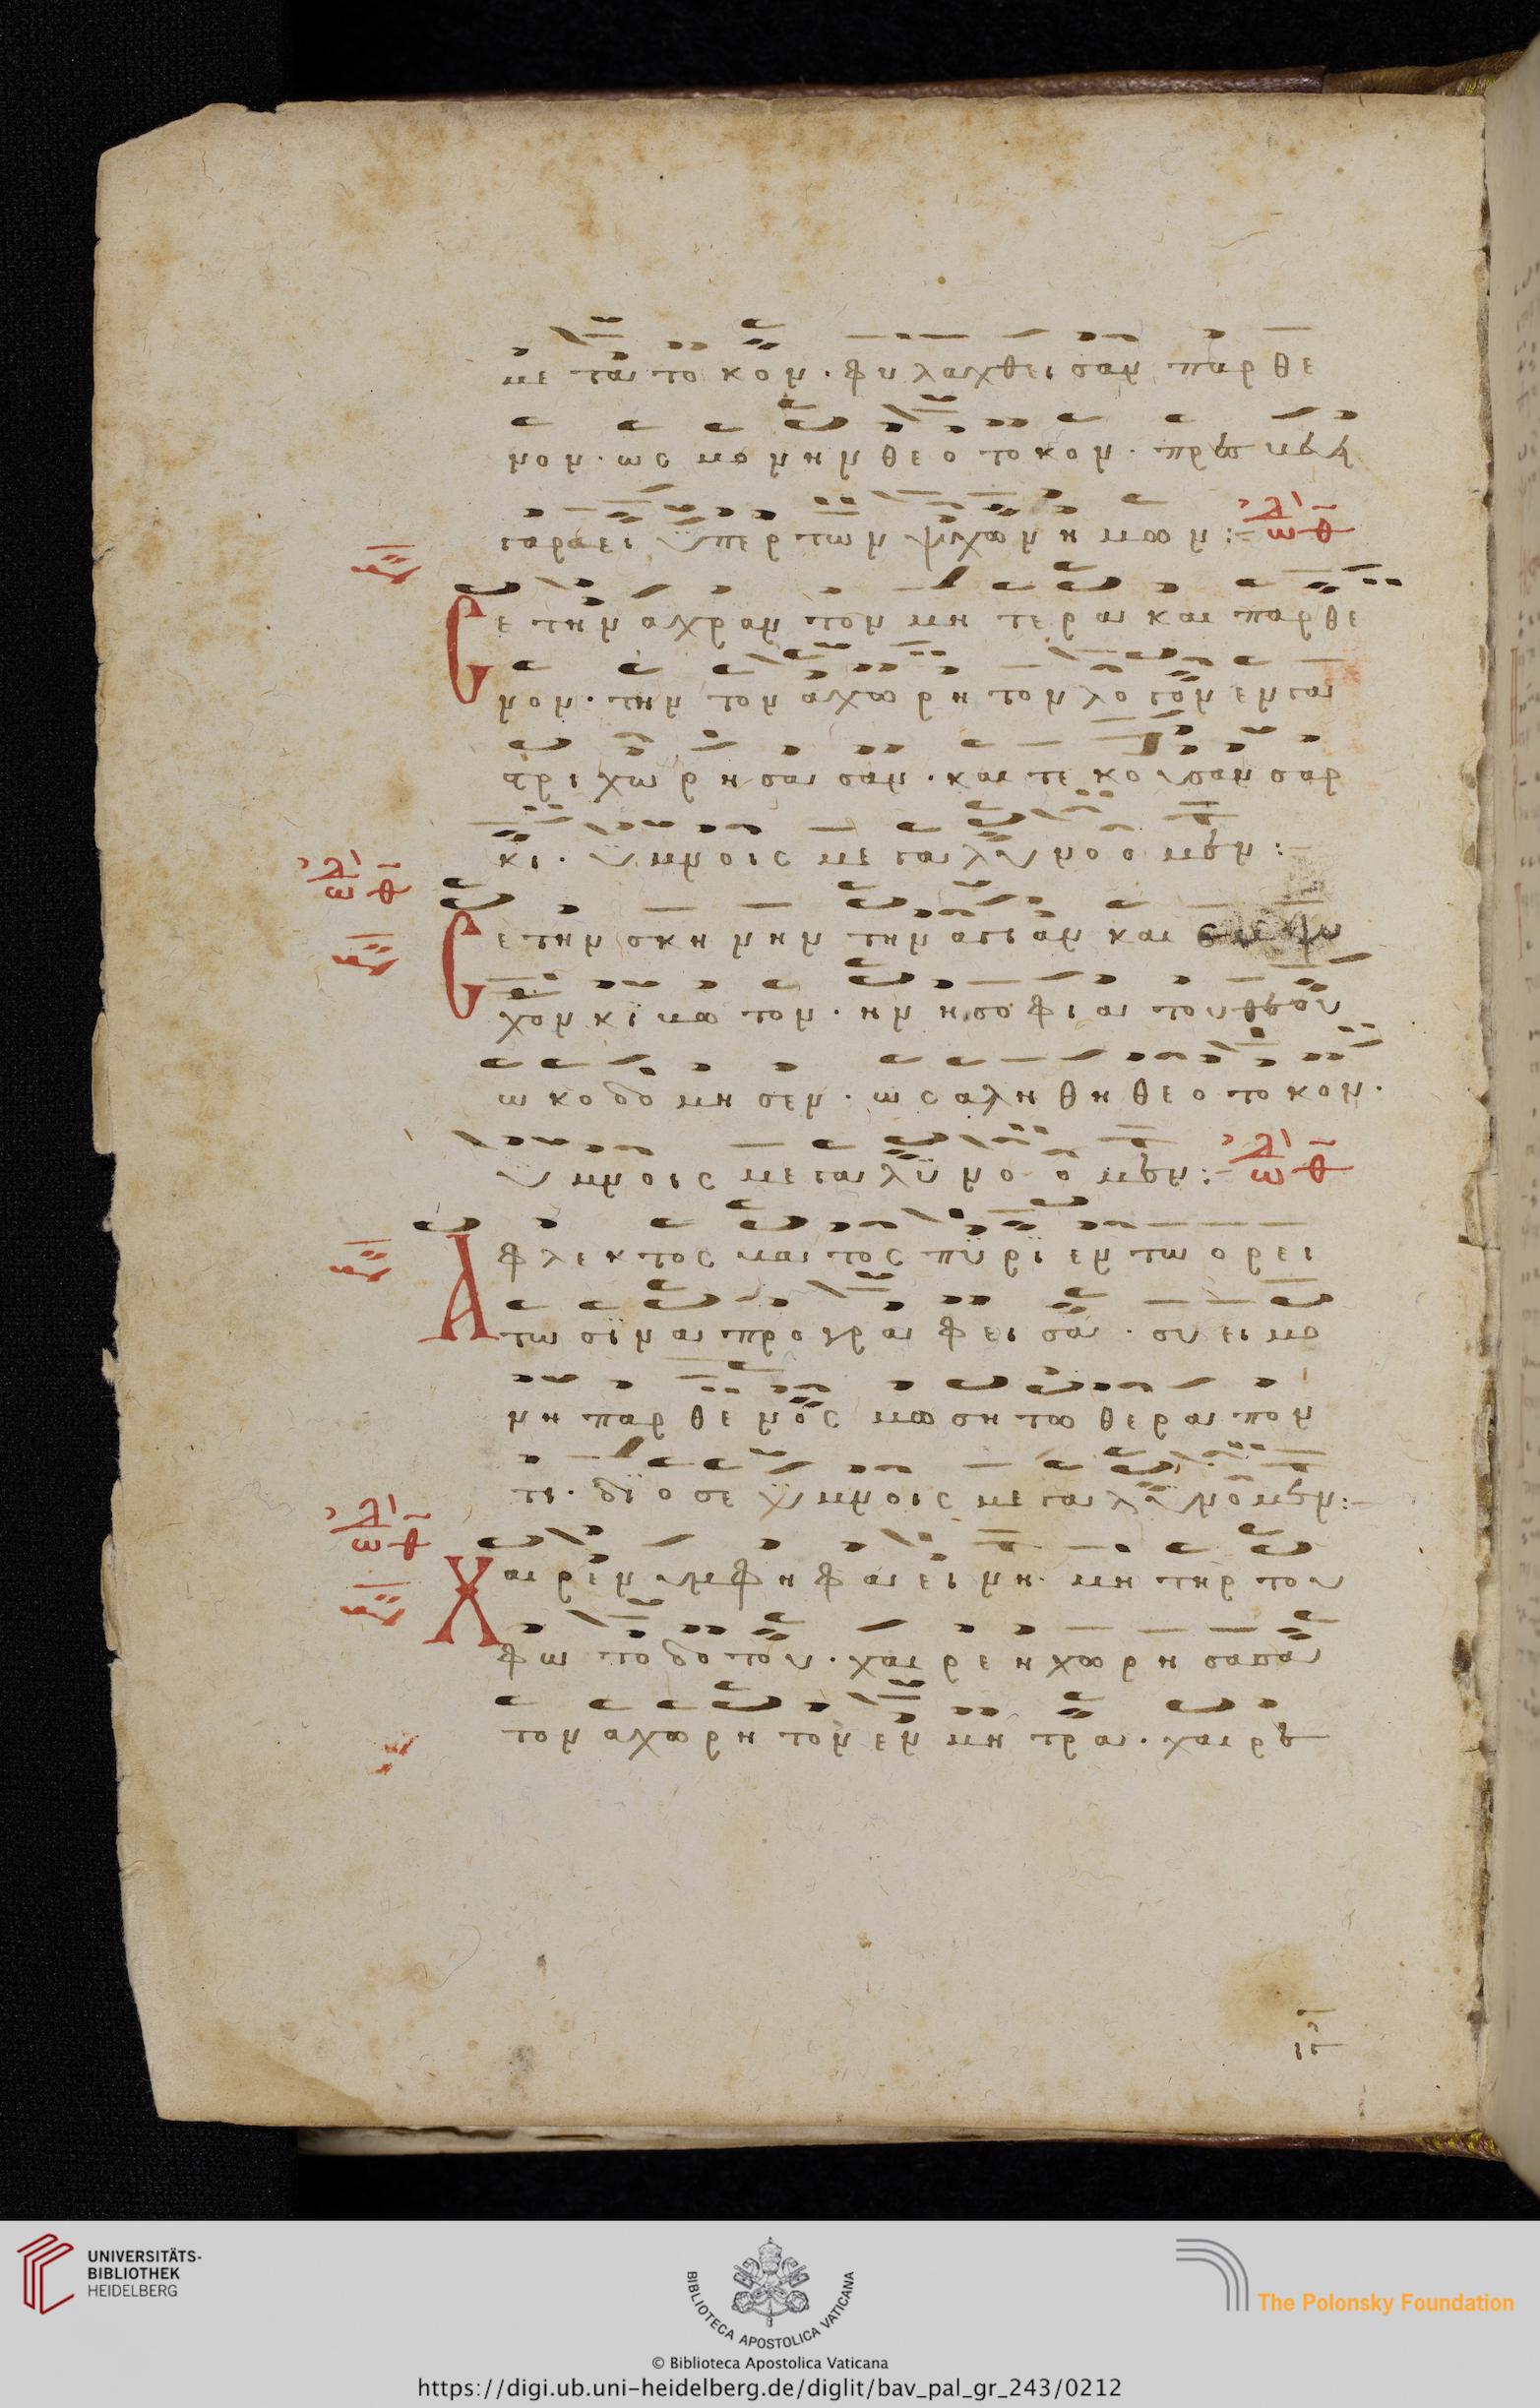 με τα το κον · φυ λα χθει σαν παρ θε
νον · ως μο νην θεο το κον · πρε
υ περ των ψυ χων η μων :
ε την αχραν τον μη τε ρα και παρ θε
νον · την τον αχω ρη τον λο γον εν γα
στρι χω ρη σα σαν · και τε κου σαν σαρ
κι · υ μνοις με γα λυ νο
ε την σκη νην την αγι αν και
χον κι βω τον · ην η σο φι α του θεου
ω κο δο μη σεν · ως αλη θη θεο το κον ·
υ μνοις με γα λυ νο
φλεκ τος βα τος πυ ρι εν τω ο ρει
Α τω σι να προ γρα φει σα · συ ει μο
νη παρ θε νος μω ση τω θε ρα πον
τι · δι ο σε υ μνοις με γα λυ νο
Χ αι ρε νυ μφη φα ει νη · μη τηρ του
φω το δο του · χαι ρε η χω ρη σα σα
τον αχω ρη τον εν μη τρα · χαι ρε
UNIVERSITÄTS-
BIBLIOTHEK
HEIDELBERG
BIBLIOTECA APOSTOLICA VATICANA
The Polonsky Foundation
© Biblioteca Apostolica Vaticana
https://digi.ub.uni-heidelberg.de/diglit/bav_pal_gr_243/0212